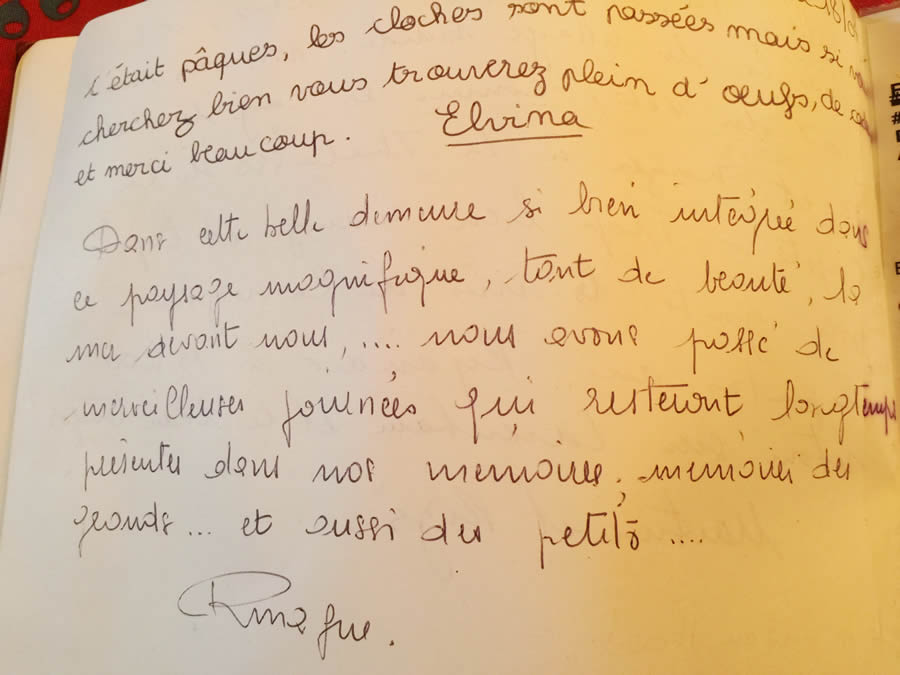 c'était pâques, les cloches sont passées mais si
cherchez bien vous trouverez plein d'oeufs, de
et merci beaucoup. Elvina
Dans cette belle demeure si bien intégrée dans
ce paysage magnifique, tant de beauté, la
mer devant nous, .... nous avons passé de
merveilleuses journées qui resteront longtemps
présentes dans nos mémoires, mémoires des
grands... et aussi des petits ....